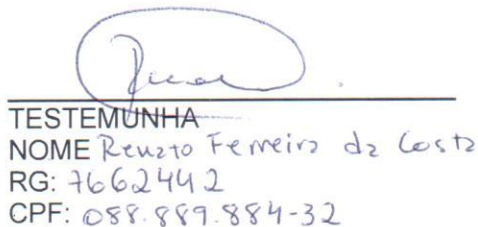 TESTEMUNHA
NOME Renato Ferreira da Costa
RG: 7662442
CPF: 088.889.884-32